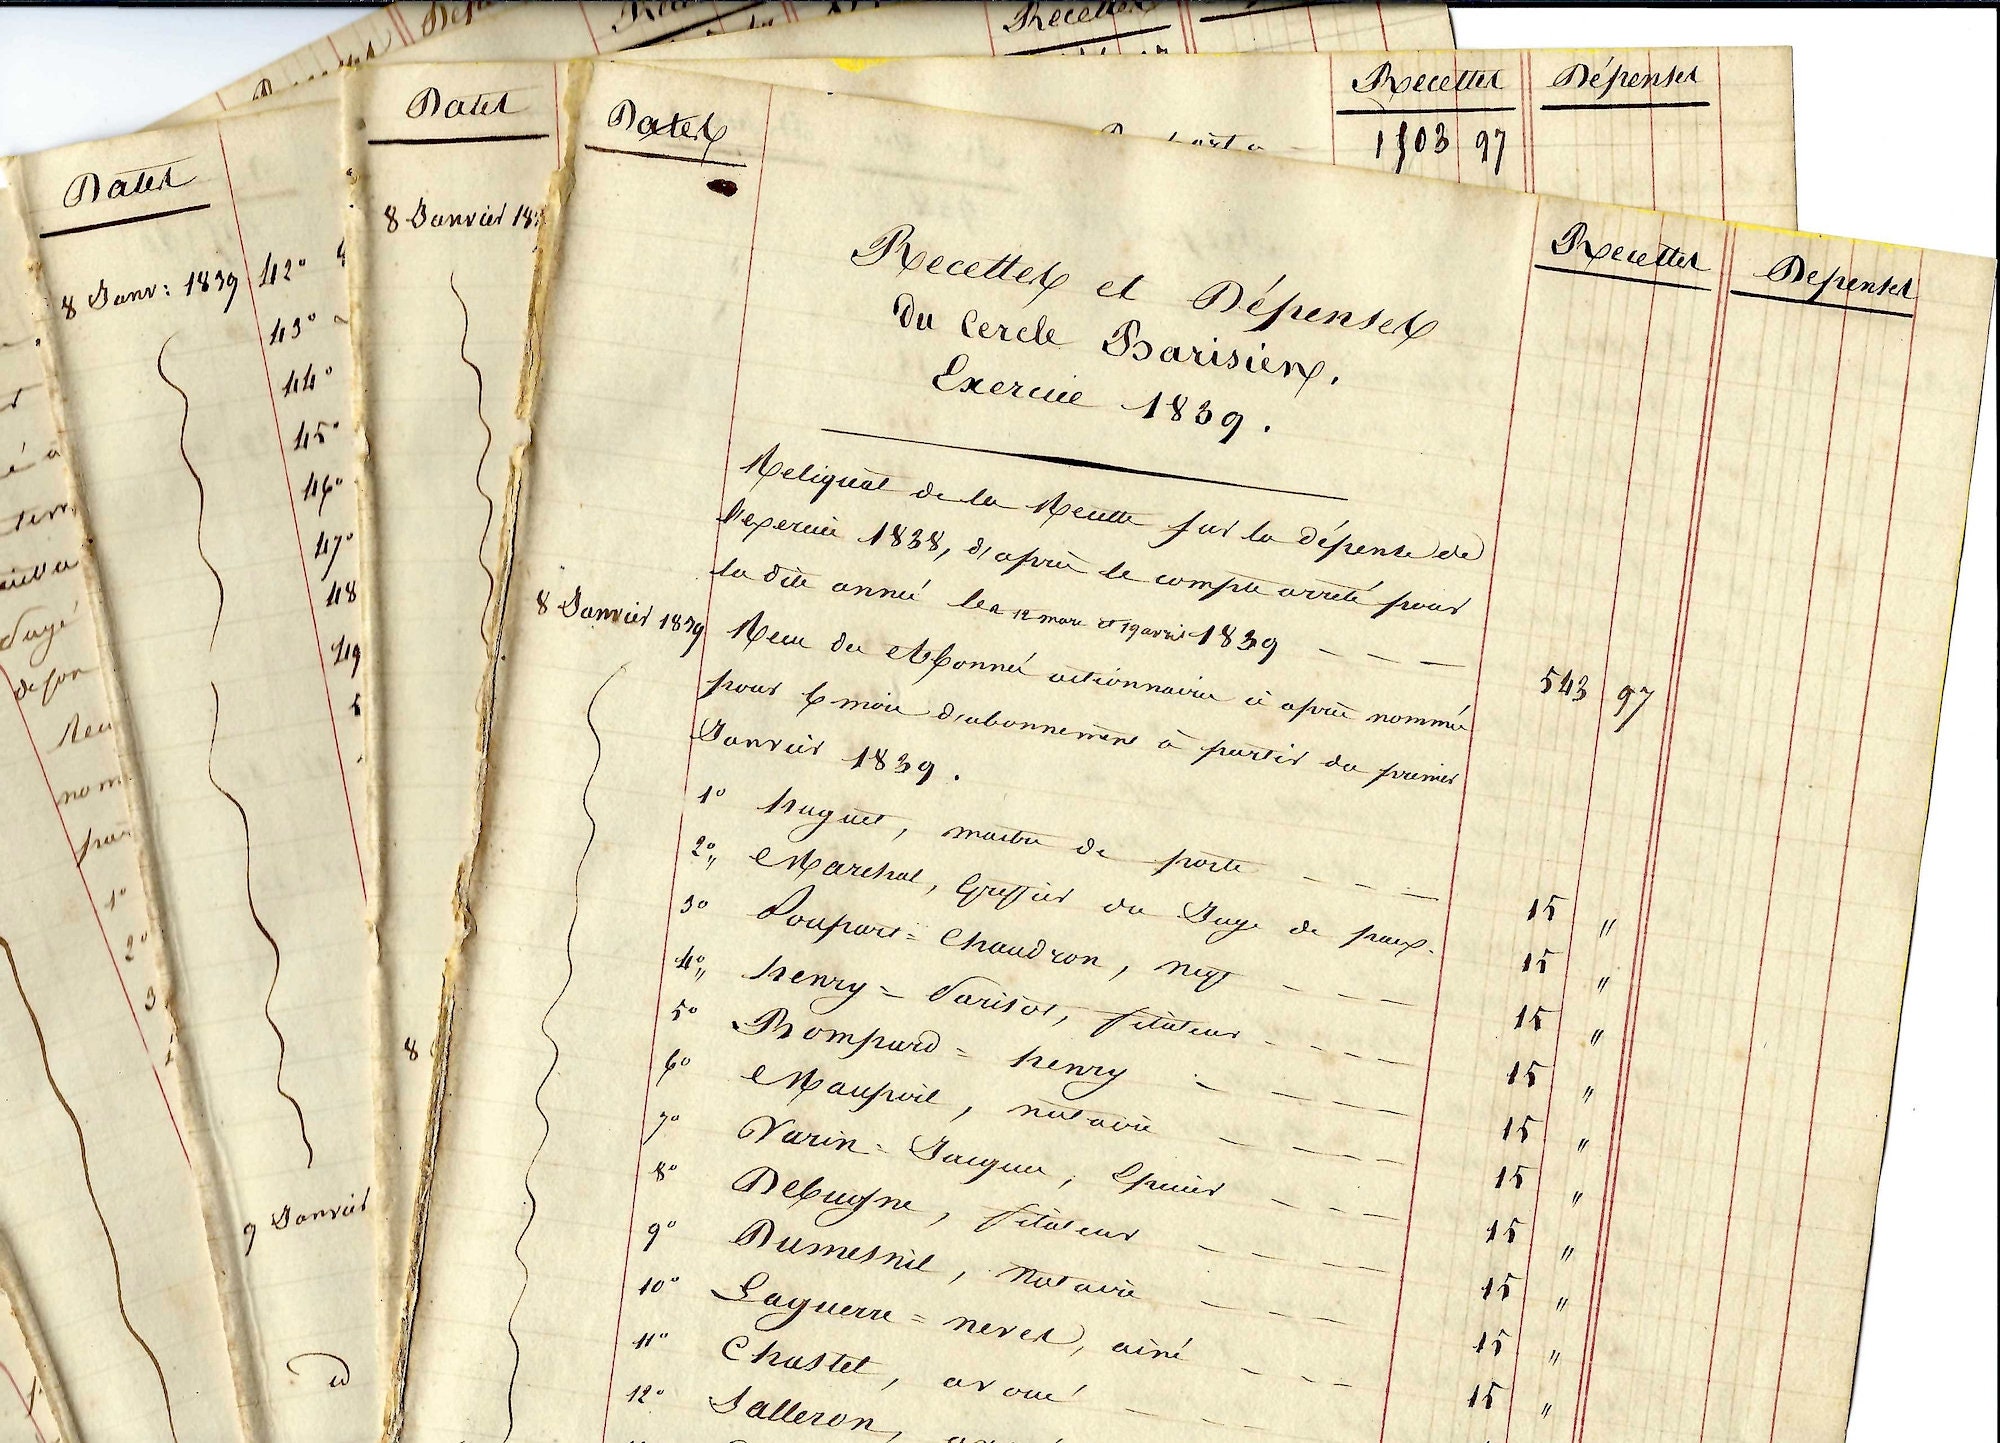 Recettes
Dates
8 Janv: 1839
42°
43°
44°
45°
46°
47°
48
49
9 Janvier
Dates
8 Janvier 183
8
Recettes Dépenses
1503 97
Dates Recettes Dépenses
Recettes et Dépenses
du Cercle Barisien.
Exercice 1839.
Reliquat de la Recette sur la dépense de
l'exercice 1838, d'après le compte arrêté pour
la dite année les 12 mars et 19 avril 1839 - - - 543 97
8 Janvier 1839 Reçu des Abonnés actionnaires ci après nommés
pour 6 mois d'abonnement à partir du premier
Janvier 1839.
1° huguet, maitre de poste - - - 15 "
2°" Marchal, Greffier du Juge de paix. 15 "
3° Poupart = Chaudron, negt - - - 15 "
4°" henry = Parisot, filateur - - - - 15 "
5° Bompard = henry - - - - 15 "
6° Maupoil, notaire - - - - 15 "
7° Varin = Jacquier, Epicier - - - 15 "
8° Debugne, filateur - - - - 15 "
9° Dumesnil, Notaire - - - 15 "
10° Laguerre = neveu, ainé - - - 15 "
11° Chastel, avoué - -
12° Salleron,